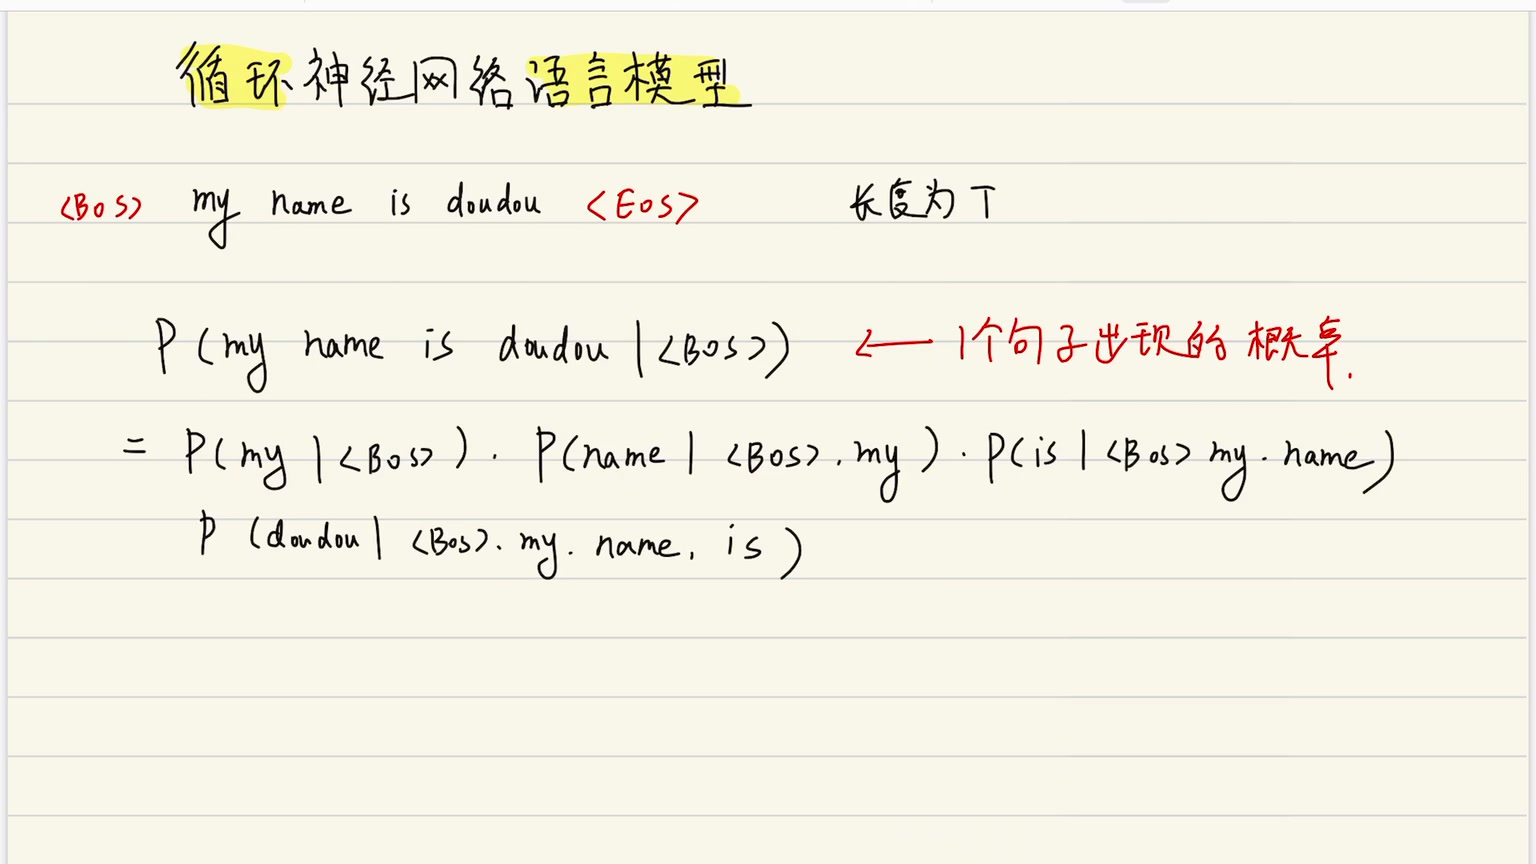 循环神经网络语言模型
<BOS> my name is doudou <EOS> 长度为 T
P(my name is doudou | <BOS>) ← 1个句子出现的概率.
= P(my | <BOS>) · P(name | <BOS>, my) · P(is | <BOS> my · name)
P (doudou | <BOS>. my. name, is)